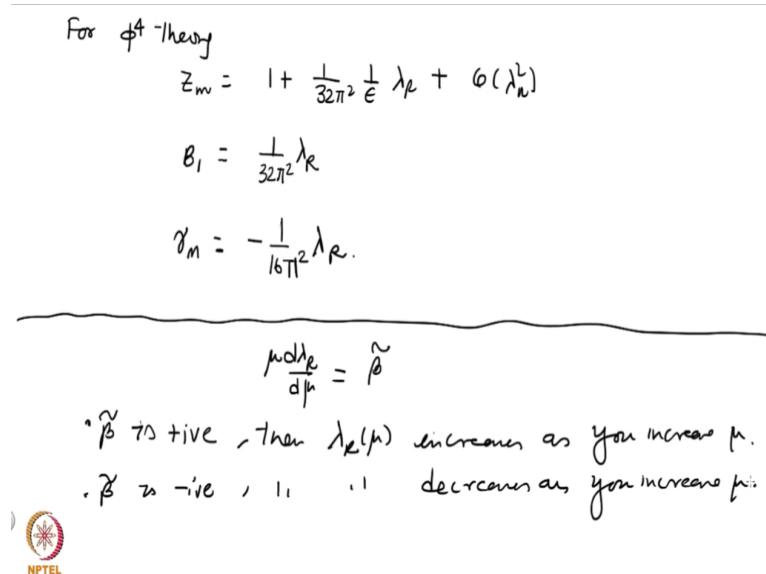 For ϕ⁴-Theory
Z_m = 1 + 1/32π² 1/ϵ λ_R + O(λ_R²)
B_1 = 1/32π² λ_R
γ_m = -1/16π² λ_R.
μ dλ_R/dμ = β̃
• β̃ is +ive, then λ_R(μ) increases as you increase μ.
• β̃ is -ive, 〃 〃 decreases as you increase μ.
NPTEL